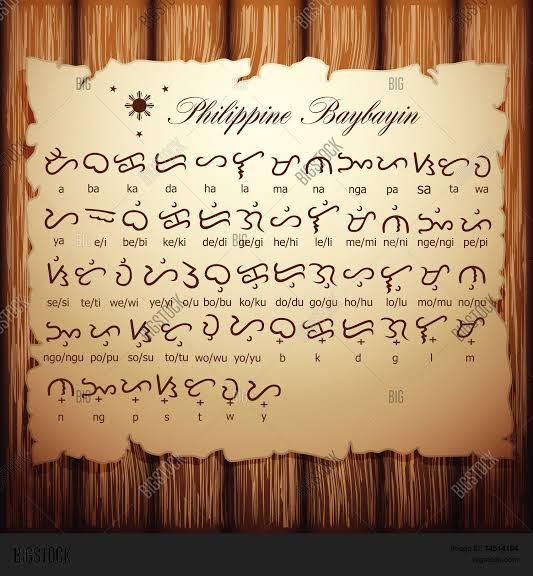 Philippine Baybayin
ᜀ ᜊ ᜃ ᜇ ᜑ ᜎ ᜋ ᜈ ᜅ ᜉ ᜐ ᜆ ᜏ
a ba ka da ha la ma na nga pa sa ta wa
ᜌ ᜁ ᜊᜒ ᜃᜒ ᜇᜒ ᜄᜒ ᜑᜒ ᜎᜒ ᜋᜒ ᜈᜒ ᜅᜒ ᜉᜒ
ya e/i be/bi ke/ki de/di ge/gi he/hi le/li me/mi ne/ni nge/ngi pe/pi
ᜐᜒ ᜆᜒ ᜏᜒ ᜌᜒ ᜂ ᜊᜓ ᜃᜓ ᜇᜓ ᜄᜓ ᜑᜓ ᜎᜓ ᜋᜓ ᜈᜓ
se/si te/ti we/wi ye/yi o/u bo/bu ko/ku do/du go/gu ho/hu lo/lu mo/mu no/nu
ᜅᜓ ᜉᜓ ᜐᜓ ᜆᜓ ᜏᜓ ᜌᜓ ᜊ᜔ ᜃ᜔ ᜇ᜔ ᜄ᜔ ᜎ᜔ ᜋ᜔
ngo/ngu po/pu so/su to/tu wo/wu yo/yu b k d g l m
ᜈ᜔ ᜅ᜔ ᜉ᜔ ᜐ᜔ ᜆ᜔ ᜏ᜔ ᜌ᜔
n ng p s t w y
BIGSTOCK
Image ID: 74514194
bigstock.com